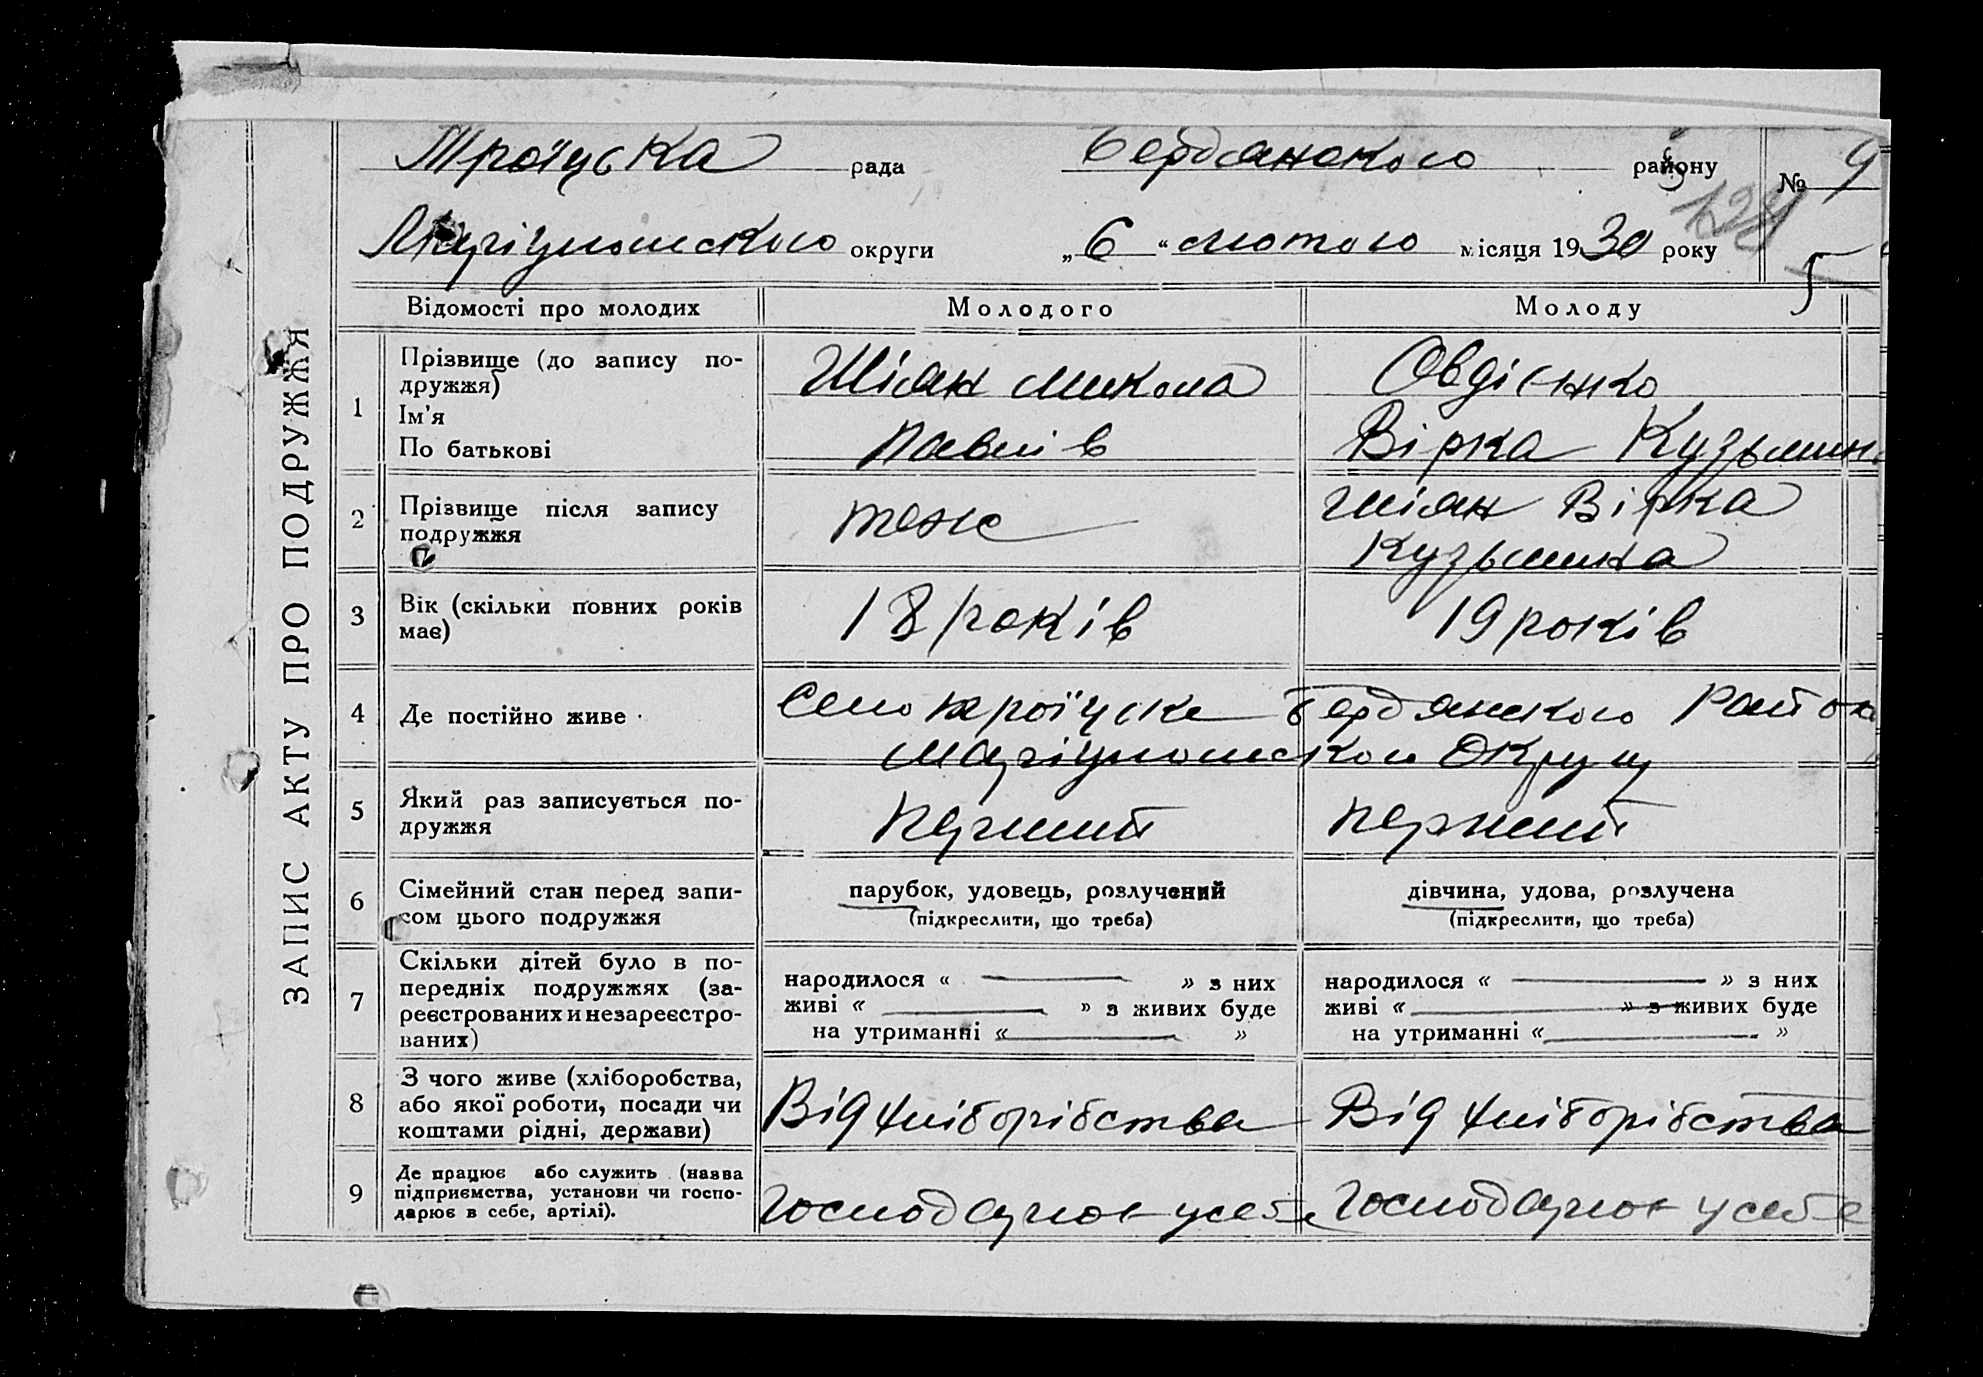 ЗАПИС АКТУ ПРО ПОДРУЖЖЯ
Троїцька рада Бердянского району № 9
Маріупольского округи „6“ лютого місяця 1930 року
Відомості про молодих Молодого Молоду
1 Прізвище (до запису подружжя) Шіян Микола Овдієнко
Ім'я
По батькові Павлів Вірка Кузьмин
2 Прізвище після запису теж Шіян Вірка
подружжя Кузьмина
3 Вік (скільки повних років 18 років 19 років
має)
4 Де постійно живе Село Троїцьке Бердянского Район
Маріупольскои Округи
5 Який раз записується по- перший перший
дружжя
6 Сімейний стан перед запи- парубок, удовець, розлучений дівчина, удова, розлучена
сом цього подружжя (підкреслити, що треба) (підкреслити, що треба)
7 Скільки дітей було в по-
передніх подружжях (за- народилося « » з них народилося « » з них
реєстрованих и незареєстро- живі « » з живих буде живі « » з живих буде
ваних) на утриманні « » на утриманні « »
8 З чого живе (хліборобства,
або якої роботи, посади чи Від хліборібства Від хліборібства
коштами рідні, держави)
9 Де працює або служить (назва
підприємства, установи чи госпо- господарює у себе господарює у себе
дарює в себе, артілі).